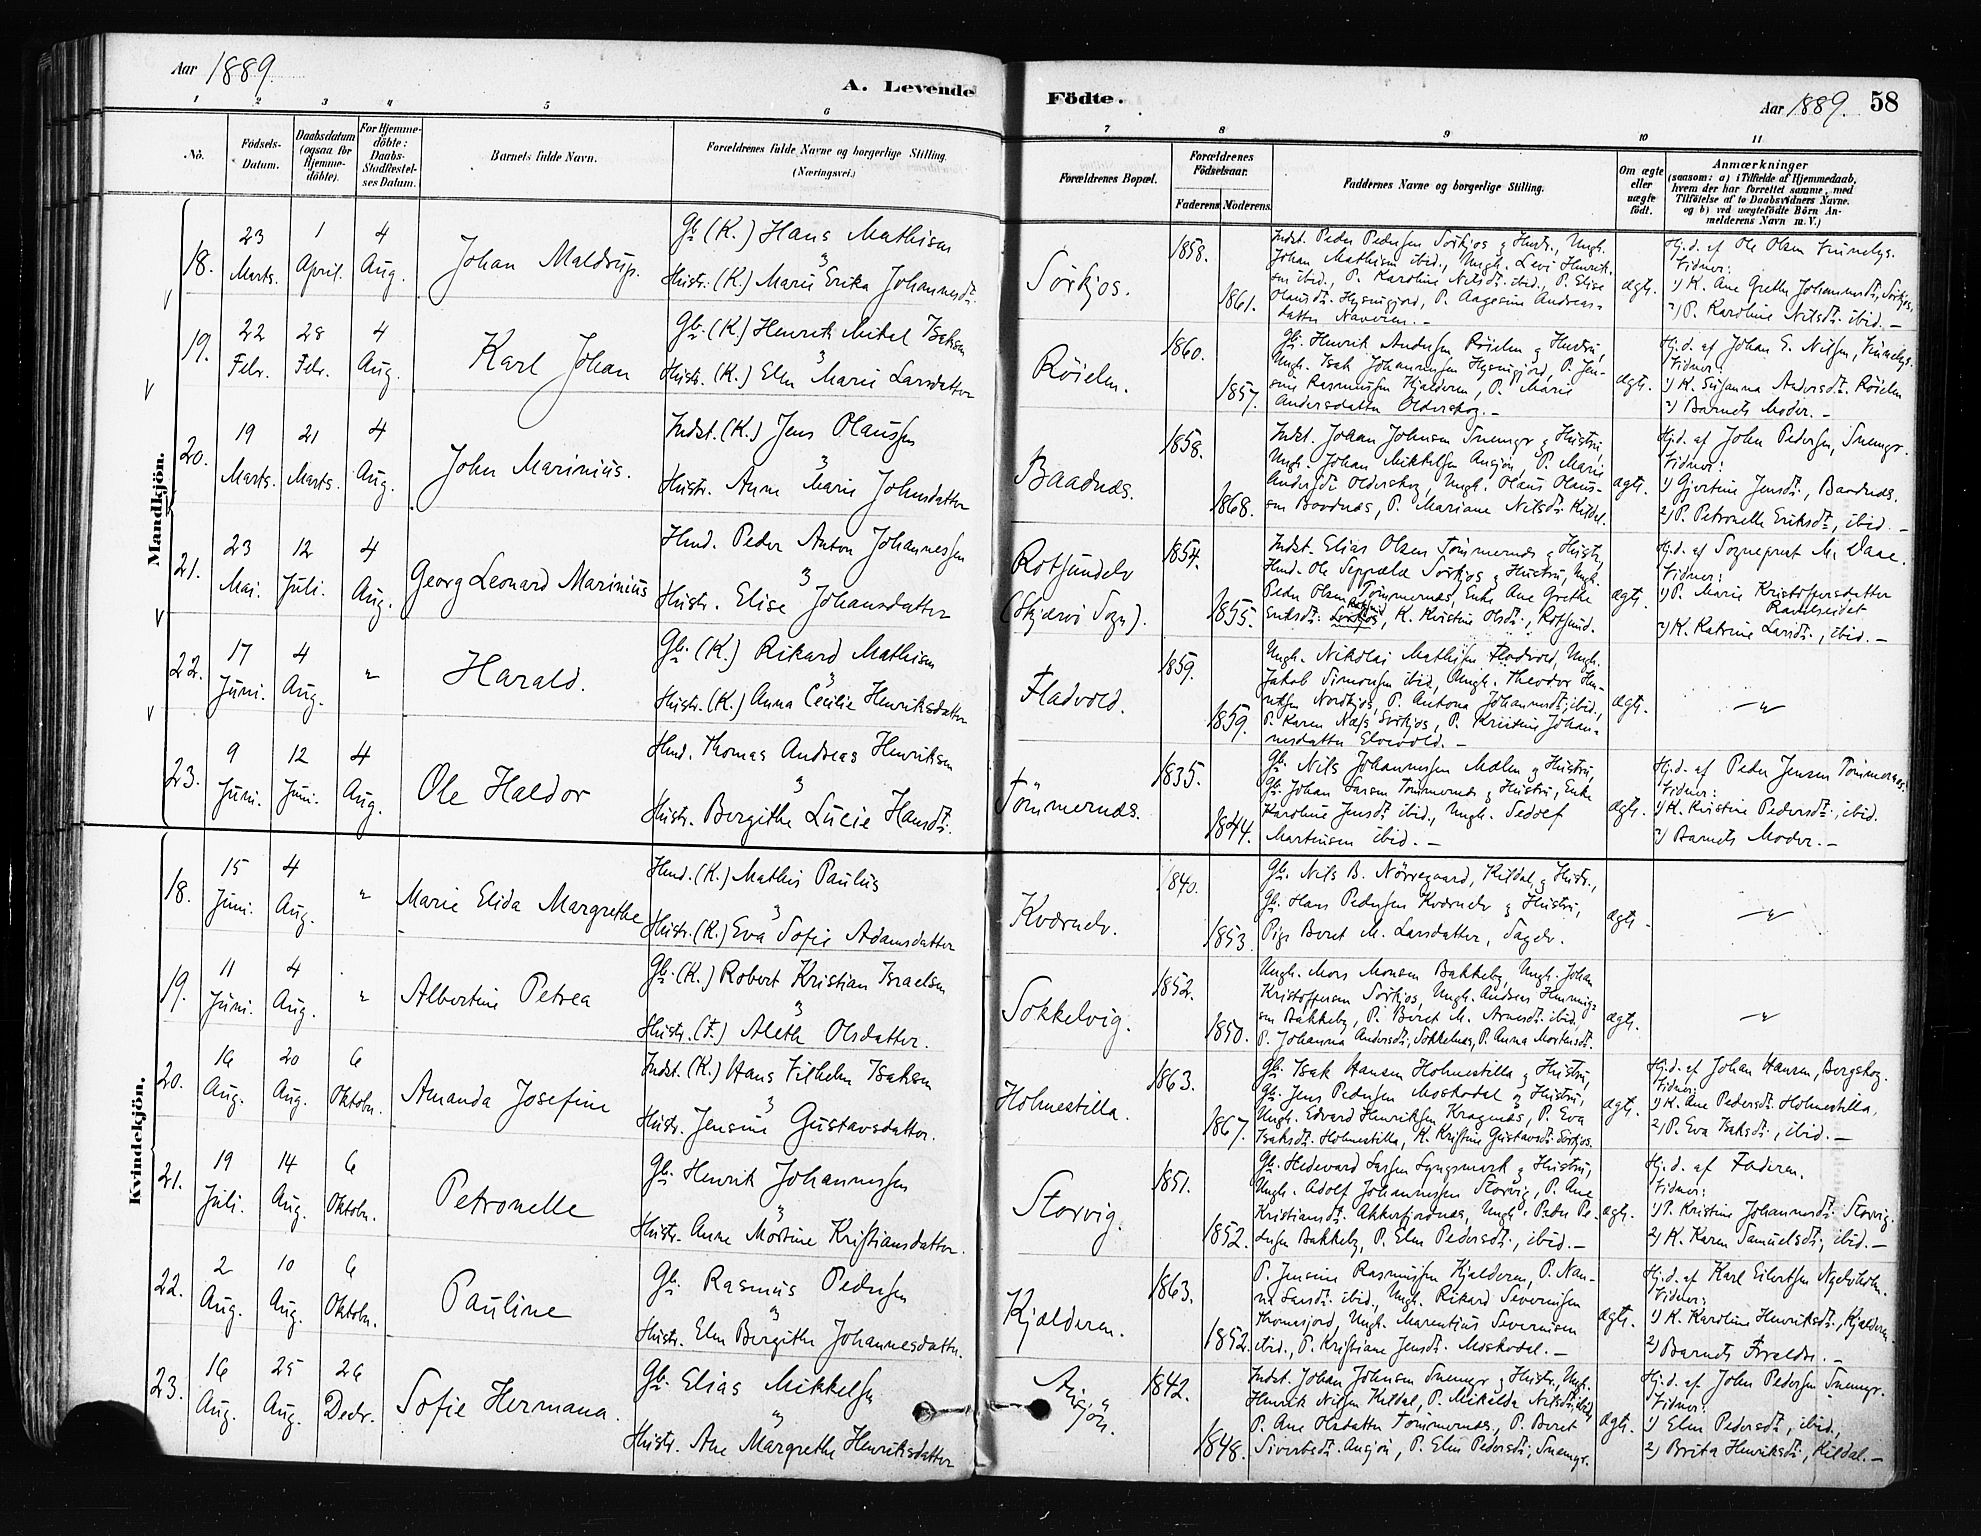 Aar 1889.
A. Levende Födte.
Aar 1889. 58
1 2 3 4 5 6 7 8 9 10 11
No.
Födsels-Datum.
Daabsdatum (ogsaa for Hjemme-döbte).
For Hjemme-döbte: Daabs-Stadfæstel-ses Datum.
Barnets fulde Navn.
Forældrenes fulde Navne og borgerlige Stilling. (Næringsvei.)
Forældrenes Bopæl.
Forældrenes Födselsaar.
Faderens. Moderens.
Faddernes Navne og borgerlige Stilling.
Om ægte eller uægte födt.
Anmærkninger
(saasom: a) i Tilfælde af Hjemmedaab, hvem der har forrettet samme, med Tilföielse af to Daabsvidners Navne, og b) ved uægtefödte Börn An-melderens Navn m. V.)
Mandkjön.
18. 23 Marts. 1 April. 4 Aug. Johan Maldrup.
Gb. (K.) Hans Mathisen
Hustr. (K.) Marie Erika Johannesdt.
Sörkjos. 1858. 1861.
Indst. Peder Pedersen Sörkjos & Hustr., Ungk.
Johan Mathisen ibid., Ungk. Levi Henrik-
sen ibid., P. Karoline Nilsdt. ibid., P. Elise
Olausdt. Hysingjord, P. Aagesine Andreas-
datter
ægte.
Hj.d. af Ole Olsen
Vidner:
1) K. Ane Grethe Johannesdt., Sörkjos,
2) P. Karoline Nilsdt. ibid. —
19. 22 Febr. 28 Febr. 4 Aug. Karl Johan
Gb. (K.) Henrik Mikal Isaksen
Hustr. (K.) Elen Marie Larsdatter
Röielen. 1860. 1857.
Gb. Henrik Andersen Röielen & Hustru,
Ungk. Isak Johannessen Hysingjord, P. Jen-
sine Rasmussen Kjelderen, P. Marie
Andersdatter Olderskog. —
ægte.
Hj.d. af Johan E. Nilsen,
Vidner:
1) K. Susanna Andersdt. Röielen
2) Barnets Moder. —
20. 19 Marts. 21 Marts. 4 Aug. John Marinius.
Indst. (K.) Jens Olaussen
Hustr. Anne Marie Johnsdatter
Baadnæs. 1858. 1868.
Indst. Johan Johnsen Snemyr & Hustru,
Ungk. Johan Mikkelsen Aasjön, P. Marie
Andersdt. Olderskog, Ungk. Olaus Olaus-
sen Baadnæs, P. Mariane Nilsdt. Kildal.
ægte.
Hj.d. af John Pedersen, Snemyr.
Vidner:
1) Gjertine Jensdt., Baadnæs.
2) P. Petronelle Eriksdt., ibid. —
21. 23 Mai. 12 Juli. 4 Aug. Georg Leonard Marinius
Hmd. Peder Anton Johannessen
Hustr. Elise Johansdatter
Rotsundelv (Skjervö Sogn). 1854. 1855.
Indst. Elias Olsen Tömmernes & Hustr.,
Hmd. Ole Seppælæ Sörkjos & Hustru, Ungk.
Peder Olsen Tömmernæs, Enke Ane Grethe
Eriksdt. Sörkjos, K. Kristine Olsdt., Rotsund.
ægte.
Hj.d. af Sogneprest M. Daae.
Vidner:
1) P. Marie Kristoffersdatter
Ravelseidet
2) K. Katrine Larsdt., ibid. —
22. 17 Juni. 4 Aug. " Harald.
Gb. (K.) Rikard Mathisen
Hustr. (K.) Anna Cecilie Henriksdatter
Fladvold. 1859. 1859.
Ungk. Nikolai Mathisen Fladvold, Ungk.
Jakob Simonsen ibid., Ungk. Theodor Hen-
riksen Nordkjos, P. Antona Johannesdt., ibid.,
P. Karen Næss, Sörkjos, P. Kristine Johan-
nesdatter Elvevold. —
ægte.
— " —
23. 9 Juni. 12 Juni. 4 Aug. Ole Haldor
Hmd. Thomas Andreas Henriksen
Hustr. Bergithe Lucie Hansdt.
Tömmernæs. 1835. 1844.
Gb. Nils Johannessen Molen & Hustru,
Gb. Johan Larsen Tömmernes & Hustru, Enke
Karoline Jensdt. ibid., Ungk. Sedolf
Martinsen ibid. —
ægte.
Hj.d. af Peder Jensen Tömmernes.
Vidner:
1) K. Kristine Pedersdt., ibid.
2) Barnets Moder. —
Kvindekjön.
18. 15 Juni. 4 Aug. " Marie Elida Margrethe
Hmd. (K.) Mathis Paulus
Hustr. (K.) Eva Sofie Adamsdatter
Kvænelv. 1840. 1853.
Gb. Nils B. Nörregaard, Kildal & Hustr.,
Gb. Hans Pedersen Kvænelv & Hustru,
Pige Beret M. Larsdatter, Sagelv.
ægte.
— " —
19. 11 Juni. 4 Aug. " Albertine Petrea
Gb. (K.) Robert Kristian Israelsen
Hustr. (F.) Aleth Olsdatter.
Sokkelvig. 1852. 1850.
Ungk. Mons Monsen Bakkeby, Ungk. Johan
Kristoffersen Sörkjos, Ungk. Andreas Henning-
sen Bakkeby, P. Beret M. Arnesdt. ibid.,
P. Johanna Andersdt., Sokkelnæs, P. Anna Mortensdt.
ægte.
— " —
20. 16 Aug. 20 Aug. 6 Oktobr. Amanda Josefine
Indst. (K.) Hans Vilhelm Isaksen
Hustr. Jensine Gustavsdatter.
Holmestilla. 1863. 1867.
Gb. Isak Hansen Holmestilla & Hustru,
Gb. Jens Pedersen Moskodal & Hustru,
Ungk. Edvard Henriksen Kragnæs, P. Eva
Isaksdt. Holmestilla, K. Kristine Gustavsdt. Sörkjos.
ægte.
Hj.d. af Johan Hansen, Bergskog.
Vidner:
1) K. Ane Pedersdt. Holmestilla,
2) P. Eva Isaksdt., ibid. —
21. 19 Juli. 14 Aug. 6 Oktobr. Petronelle
Gb. Henrik Johannessen
Hustr. Anne Mortine Kristiansdatter.
Storvig. 1851. 1852.
Gb. Hedevard Larsen Lyngsmark & Hustru,
Ungk. Adolf Johannessen Storvig, P. Ane
Kristiansdt. Akkerfjordnæs, Ungk. Peder Pe-
dersen Bakkeby, P. Elen Pedersdt., ibid. —
ægte.
Hj.d. af Faderen.
Vidner:
1) P. Kristine Johannesdt. Storvig.
2) K. Karen Samuelsdt., ibid. —
22. 2 Aug. 10 Aug. 6 Oktobr. Pauline
Gb. Rasmus Pedersen
Hustr. Elen Bergithe Johannesdatter.
Kjælderen. 1863. 1852.
P. Jensine Rasmussen Kjælderen, P. Nan-
na Larsdt. ibid., Ungk. Rikard Severinsen
Ungk. Marentius Severinsen
ibid., P. Kristiane Jensdt. Moskodal. —
ægte.
Hj.d. af Karl Eilertsen Ngelvholm.
Vidner:
1) K. Karoline Henriksdt., Kjælderen.
2) Barnets Forældre. —
23. 16 Aug. 25 Aug. 26 Decbr. Sofie Hermana.
Gb. Elias Mikkelsen
Hustr. Ane Margrethe Henriksdatter
Aasjön. 1842. 1848.
Indst. Johan Johnsen Snemyr & Hustr., Ungk.
Henrik Nilsen Kildal, P. Mikalda Nilsdt. ibid.,
P. Ane Olsdatter Tömmernæs, P. Beret
Sivertsdt. Aasjön, P. Elen Pedersdt., Snemyr.
ægte.
Hj.d. af John Pedersen Snemyr.
Vidner:
1) Elen Pedersdt., ibid.,
2) Brita Henriksdt., Kildal. —